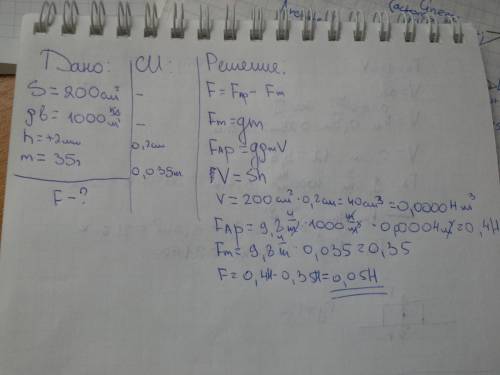 Дано:
S = 200 см²
ρв = 1000 кг/м³
h = +2 мм
m = 35 г
F - ?
СИ:
-
-
0,2 см
0,035 кг
Решение.
F = Fар - Fт
Fт = gm
Fар = gρжV
V = Sh
V = 200 см² · 0,2 см = 40 см³ = 0,00004 м³
Fар = 9,8 Н/кг · 1000 кг/м³ · 0,00004 м³ = 0,4 Н
Fт = 9,8 Н/кг · 0,035 = 0,35
F = 0,4Н - 0,35Н = 0,05Н